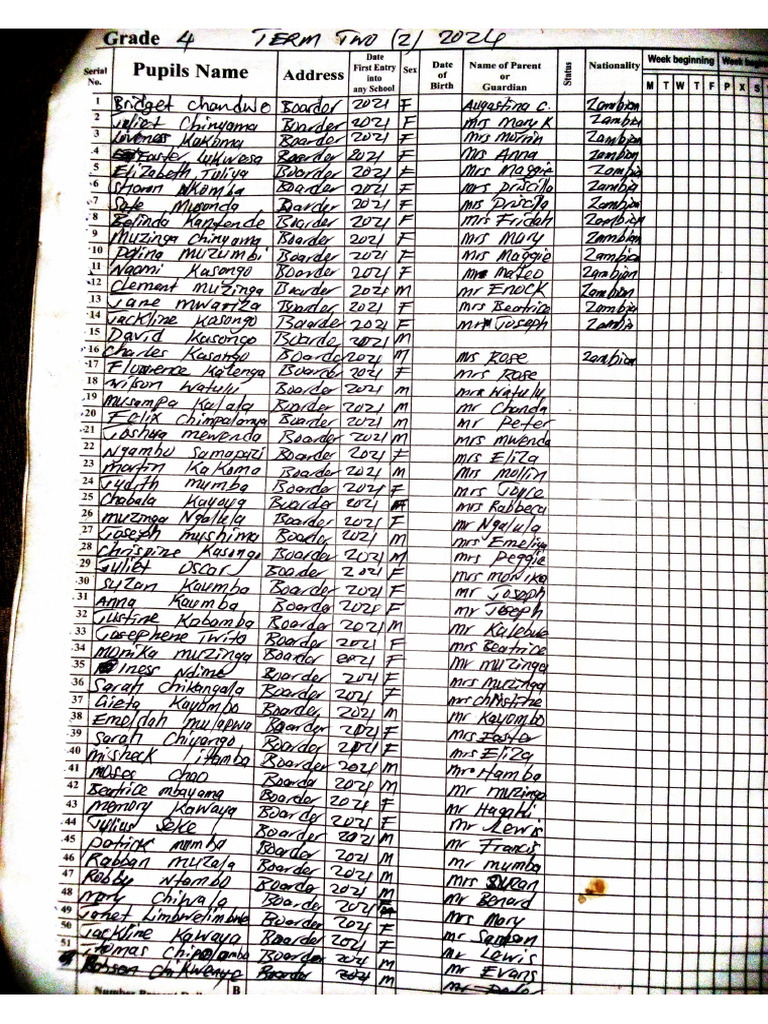 Grade 4 TERM TWO (2) 2024
Serial No. Pupils Name Address Date First Entry into any School Sex Date of Birth Name of Parent or Guardian Status Nationality Week beginning Week
M T W T F P X S
1 Bridget Chandwe Boarder 2021 F Augastina C. Zambian
2 Juliet Chinyama Boarder 2021 F Mrs Mary K Zambian
3 Loveness Kakoma Boarder 2021 F Mrs Zambian
4 Easter Lukwesa Boarder 2021 F Ms Anna Zambian
5 Elizabeth Tuliya Boarder 2021 F Mrs Maggie Zambia
6 Sharon Nkomba Boarder 2021 F Mrs Priscila Zambia
7 Musonda Boarder 2021 F Mrs Priscila Zambia
8 Belinda Kapende Boarder 2021 F Mrs Fridah Zambian
9 Muzinga Chinyama Boarder 2021 F Mrs Mary Zammbian
10 Delina Muzumbi Boarder 2021 F Mrs Maggie Zambia
11 Naomi Kasongo Boarder 2021 F Mateo Zambian
12 Clement Muzinga Boarder 2021 M Mr Enock Zambian
13 Jane Mwanza Boarder 2021 F Mrs Beatrice Zambia
14 Jackline Kasongo Boarder 2021 F Mr Joseph Zambia
15 David Kasongo Boarder 2021 M
16 Charles Kasongo Boarder 2021 M Ms Rose Zambian
17 Florence Katenga Boarder 2021 F Mrs Rose
18 Wilson Watulu Boarder 2021 M Watulu
19 Musampa Kalala Boarder 2021 M Mr Chanda
20 Felix Chimpalanya Boarder 2021 M Mr Peter
21 Joshua mewenda Boarder 2021 M mrs mwenda
22 Ngambu Samapazi Boarder 2021 F mrs Eliza
23 martin Kakoma Boarder 2021 M Mrs mollin
24 Judith mumba Boarder 2021 F mrs Joyce
25 Chabala Kayoya Boarder 2021 mrs Rabbeca
26 muzinga Ngalula Boarder 2021 F mr Ngalula
27 Joseph mushima Boarder 2021 M mrs Emeliya
28 Chrispine Kasongo Boarder 2021 M mrs Peggie
29 Juliet Oscar Boarder 2021 F mrs MONIKA
30 Suzan Kaumba Boarder 2021 F mr Joseph
31 Anna Kaumba Boarder 2021 F mr Joseph
32 Justine Kabamba Boarder 2021 M Mr Kalebwe
33 Josephene Twita Boarder 2021 F Mrs Beatrice
34 monika muzinga Boarder 2021 F Mr muzinga
35 Iness Ndime Boarder 2021 F mrs muzinga
36 Sarah Chikangala Boarder 2021 F mr christine
37 Gieta Kayombo Boarder 2021 M Mr Kayombo
38 Emeldah mulapwa Boarder 2021 F Mrs Easter
39 Sarah Chiyango Boarder 2021 F Mrs Eliza
40 misheck Itamba Boarder 2021 M
41 moses Chao Boarder 2021 M Mr muzinga
42 Beatrice mbayama Boarder 2021 F
43 memory Kawaya Boarder 2021 F Mr Lewis
44 Julius Seke Boarder 2021 M Mr Francis
45 patrick mumba Boarder 2021 M mr mumba
46 Rabban Muzala Boarder 2021 M Mrs Suzan
47 Robby Ntambo Boarder 2021 M Mr Benard
48 Mary Chiwala Boarder 2021 Mrs Mary
49 Janet Limbwelimbwe Boarder 2021 F Mr Samson
50 Jackline Kawaya Boarder 2021 F Mr Lewis
51 Thomas Boarder 2021 M Mr Evans
Robson Chikwenye Boarder 2021 M
B